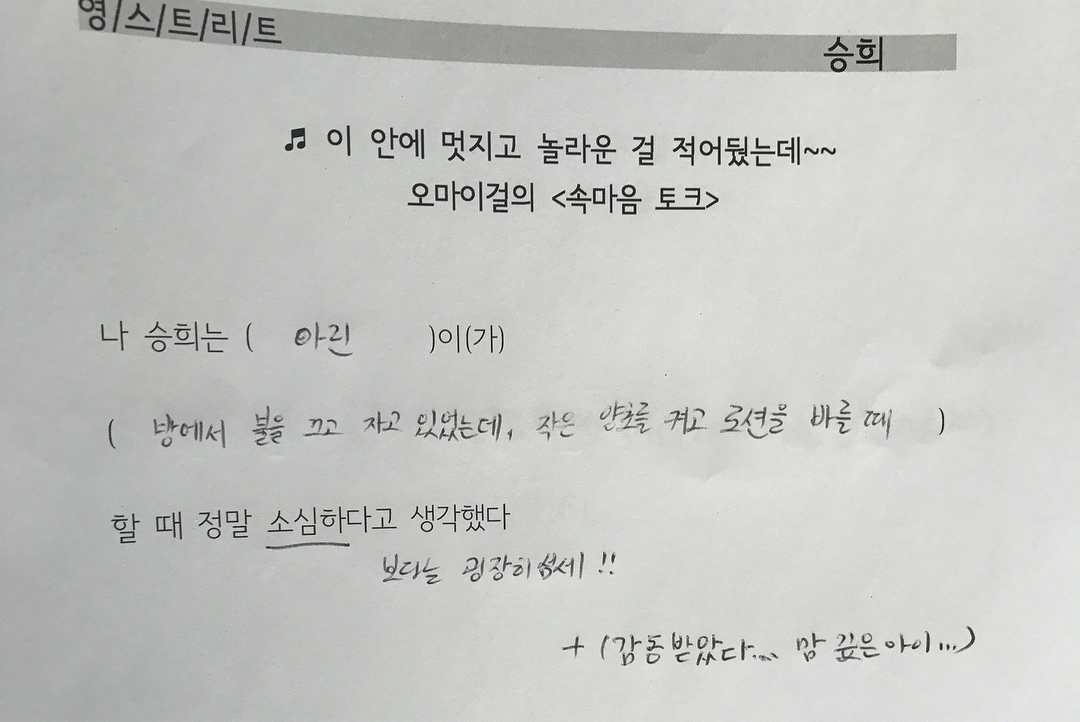 영/스/트/리/트
승희
♬ 이 안에 멋지고 놀라운 걸 적어뒀는데~~
오마이걸의 <속마음 토크>
나 승희는 ( 아린 )이(가)
( 방에서 불을 끄고 자고 있었는데, 작은 양초를 켜고 로션을 바를 때 )
할 때 정말 소심하다고 생각했다
보다는 굉장히 섬세!!
+ (감동받았다... 맘 깊은아이...)